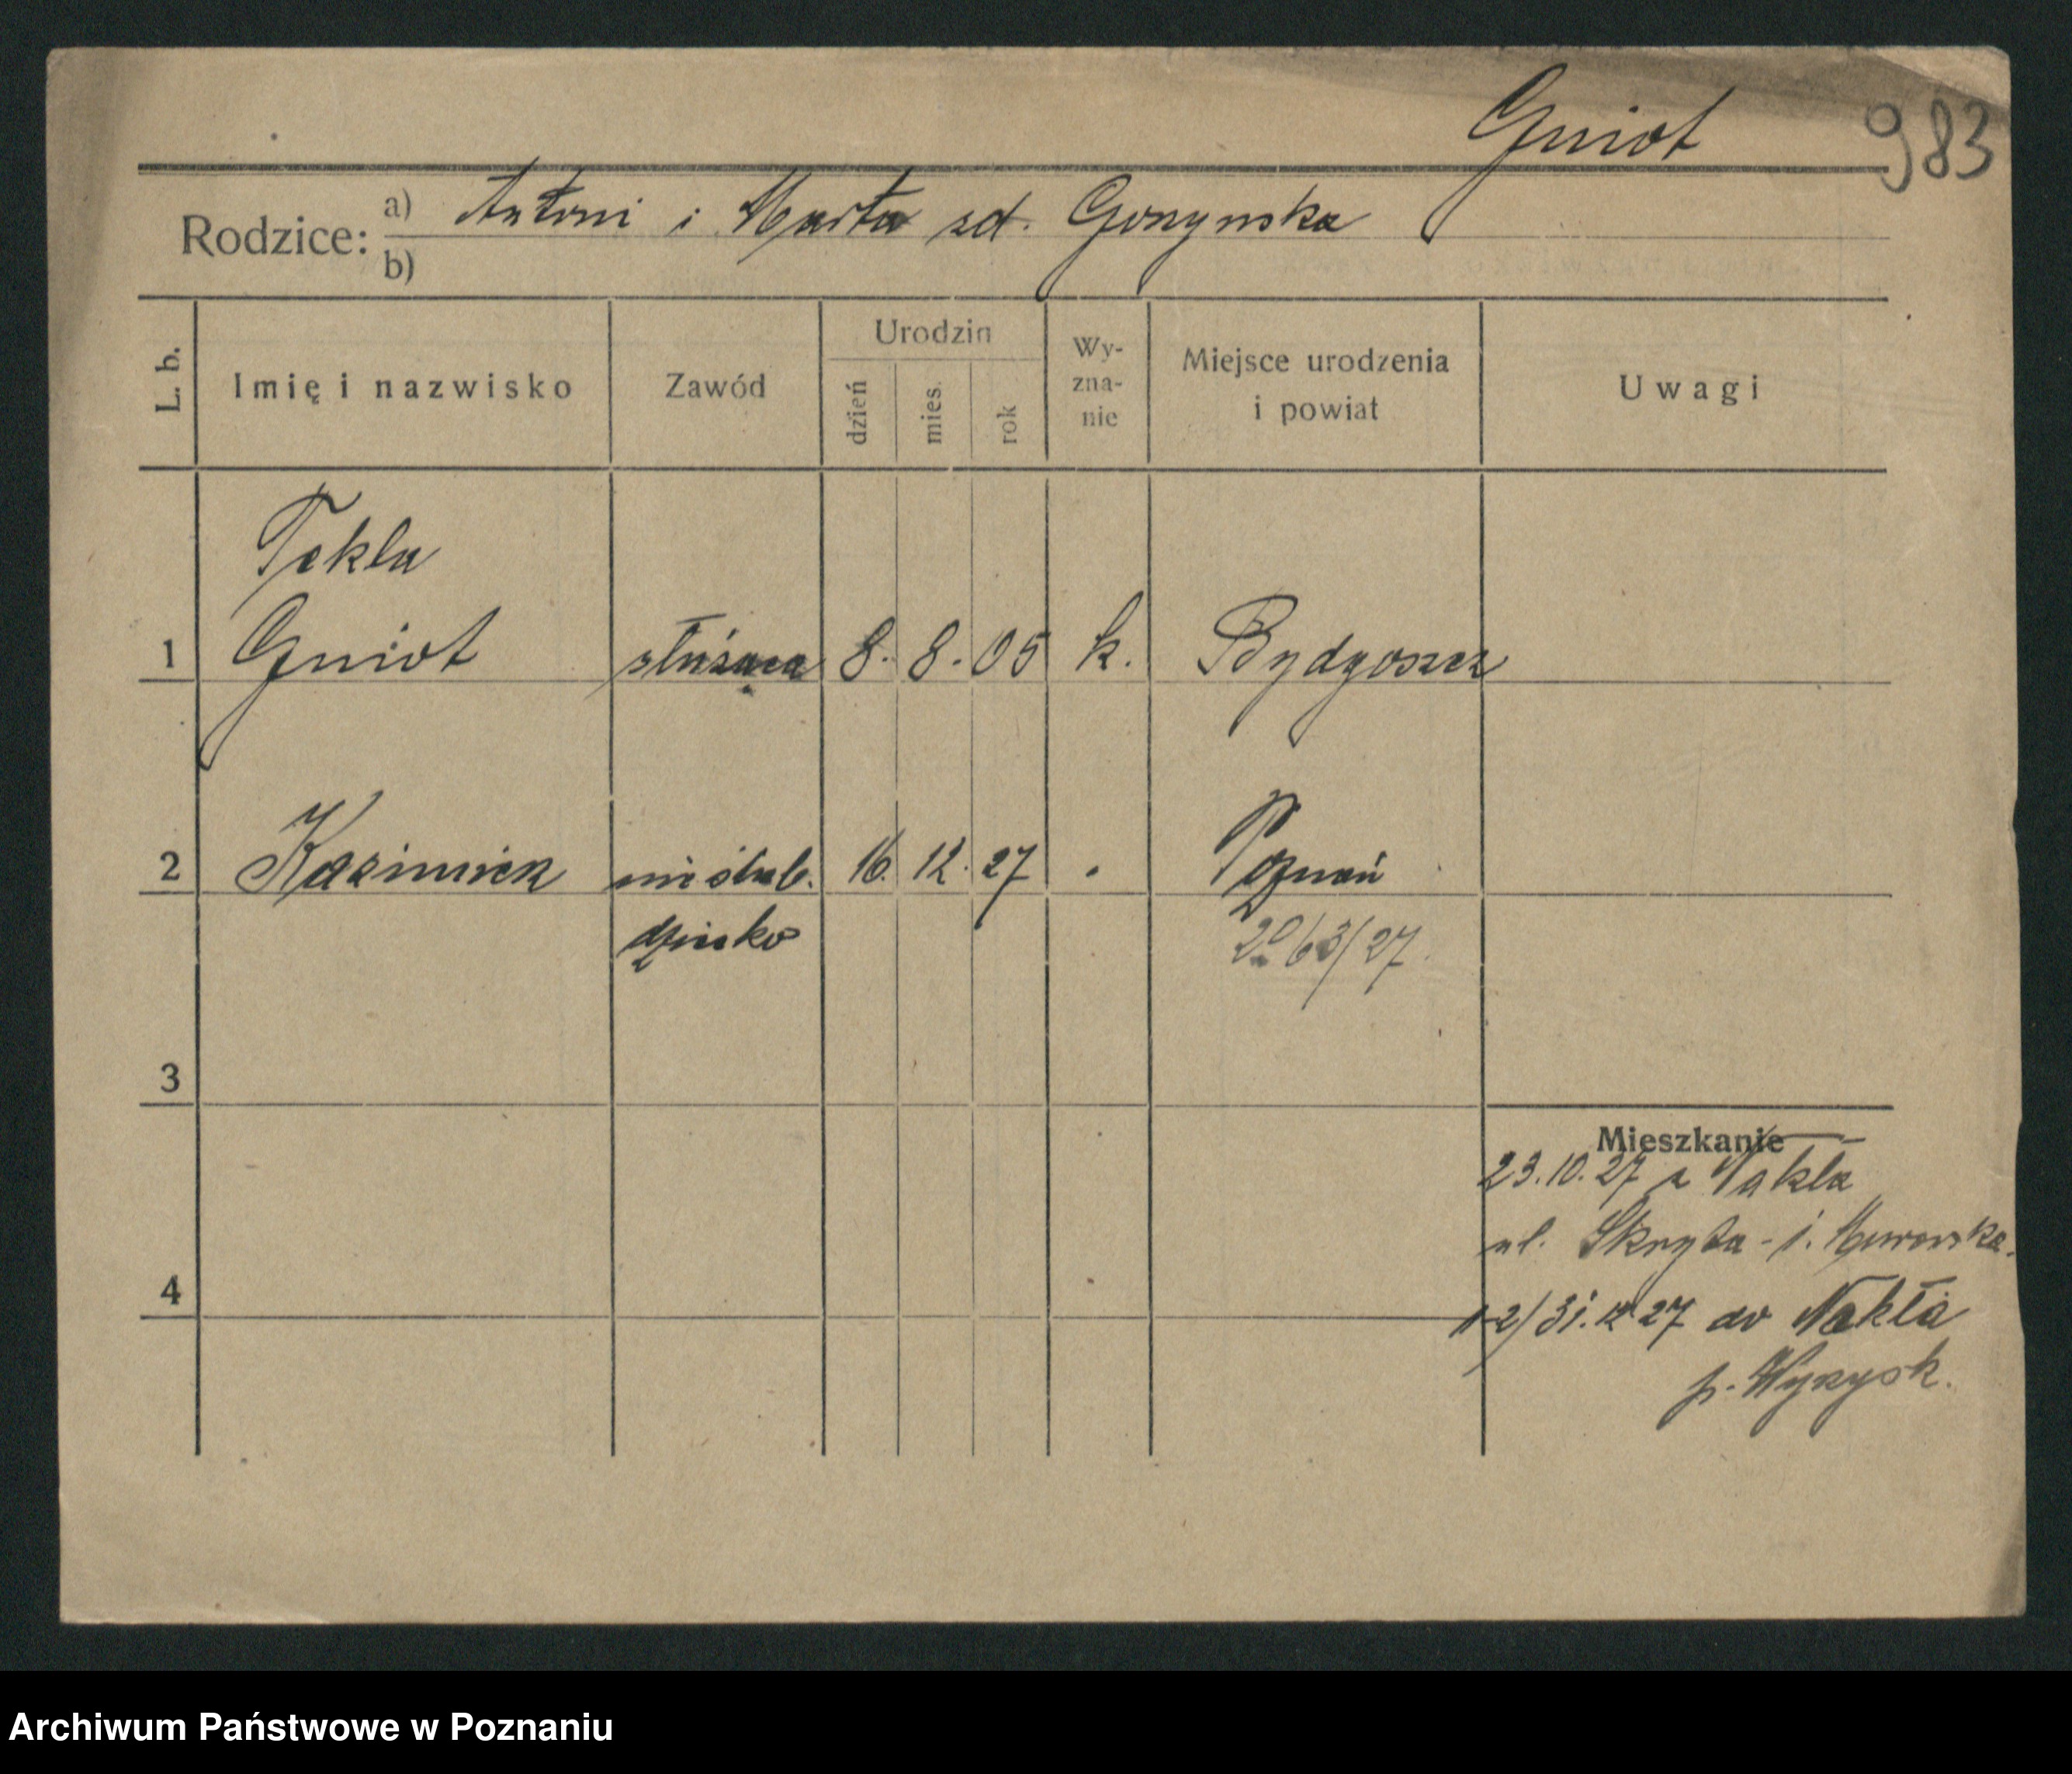 Gniot 983
Rodzice: a) Antoni i Marta zd. Gozynska
b)
L. b. Imię i nazwisko Zawód Urodzin dzień mies. rok Wy-zna-nie Miejsce urodzenia i powiat Uwagi
Tekla
1 Gniot służąca 8. 8. 05 k. Bydgoszcz
2 Kazimierz nieślub. 16. 12. 27 Poznań
dziecko 2063/27.
3
Mieszkanie
23.10.27 z Nakła
ul. Skryta -
4
1-2/31.12 27 do Nakła
p. Wyrzysk.
Archiwum Państwowe w Poznaniu